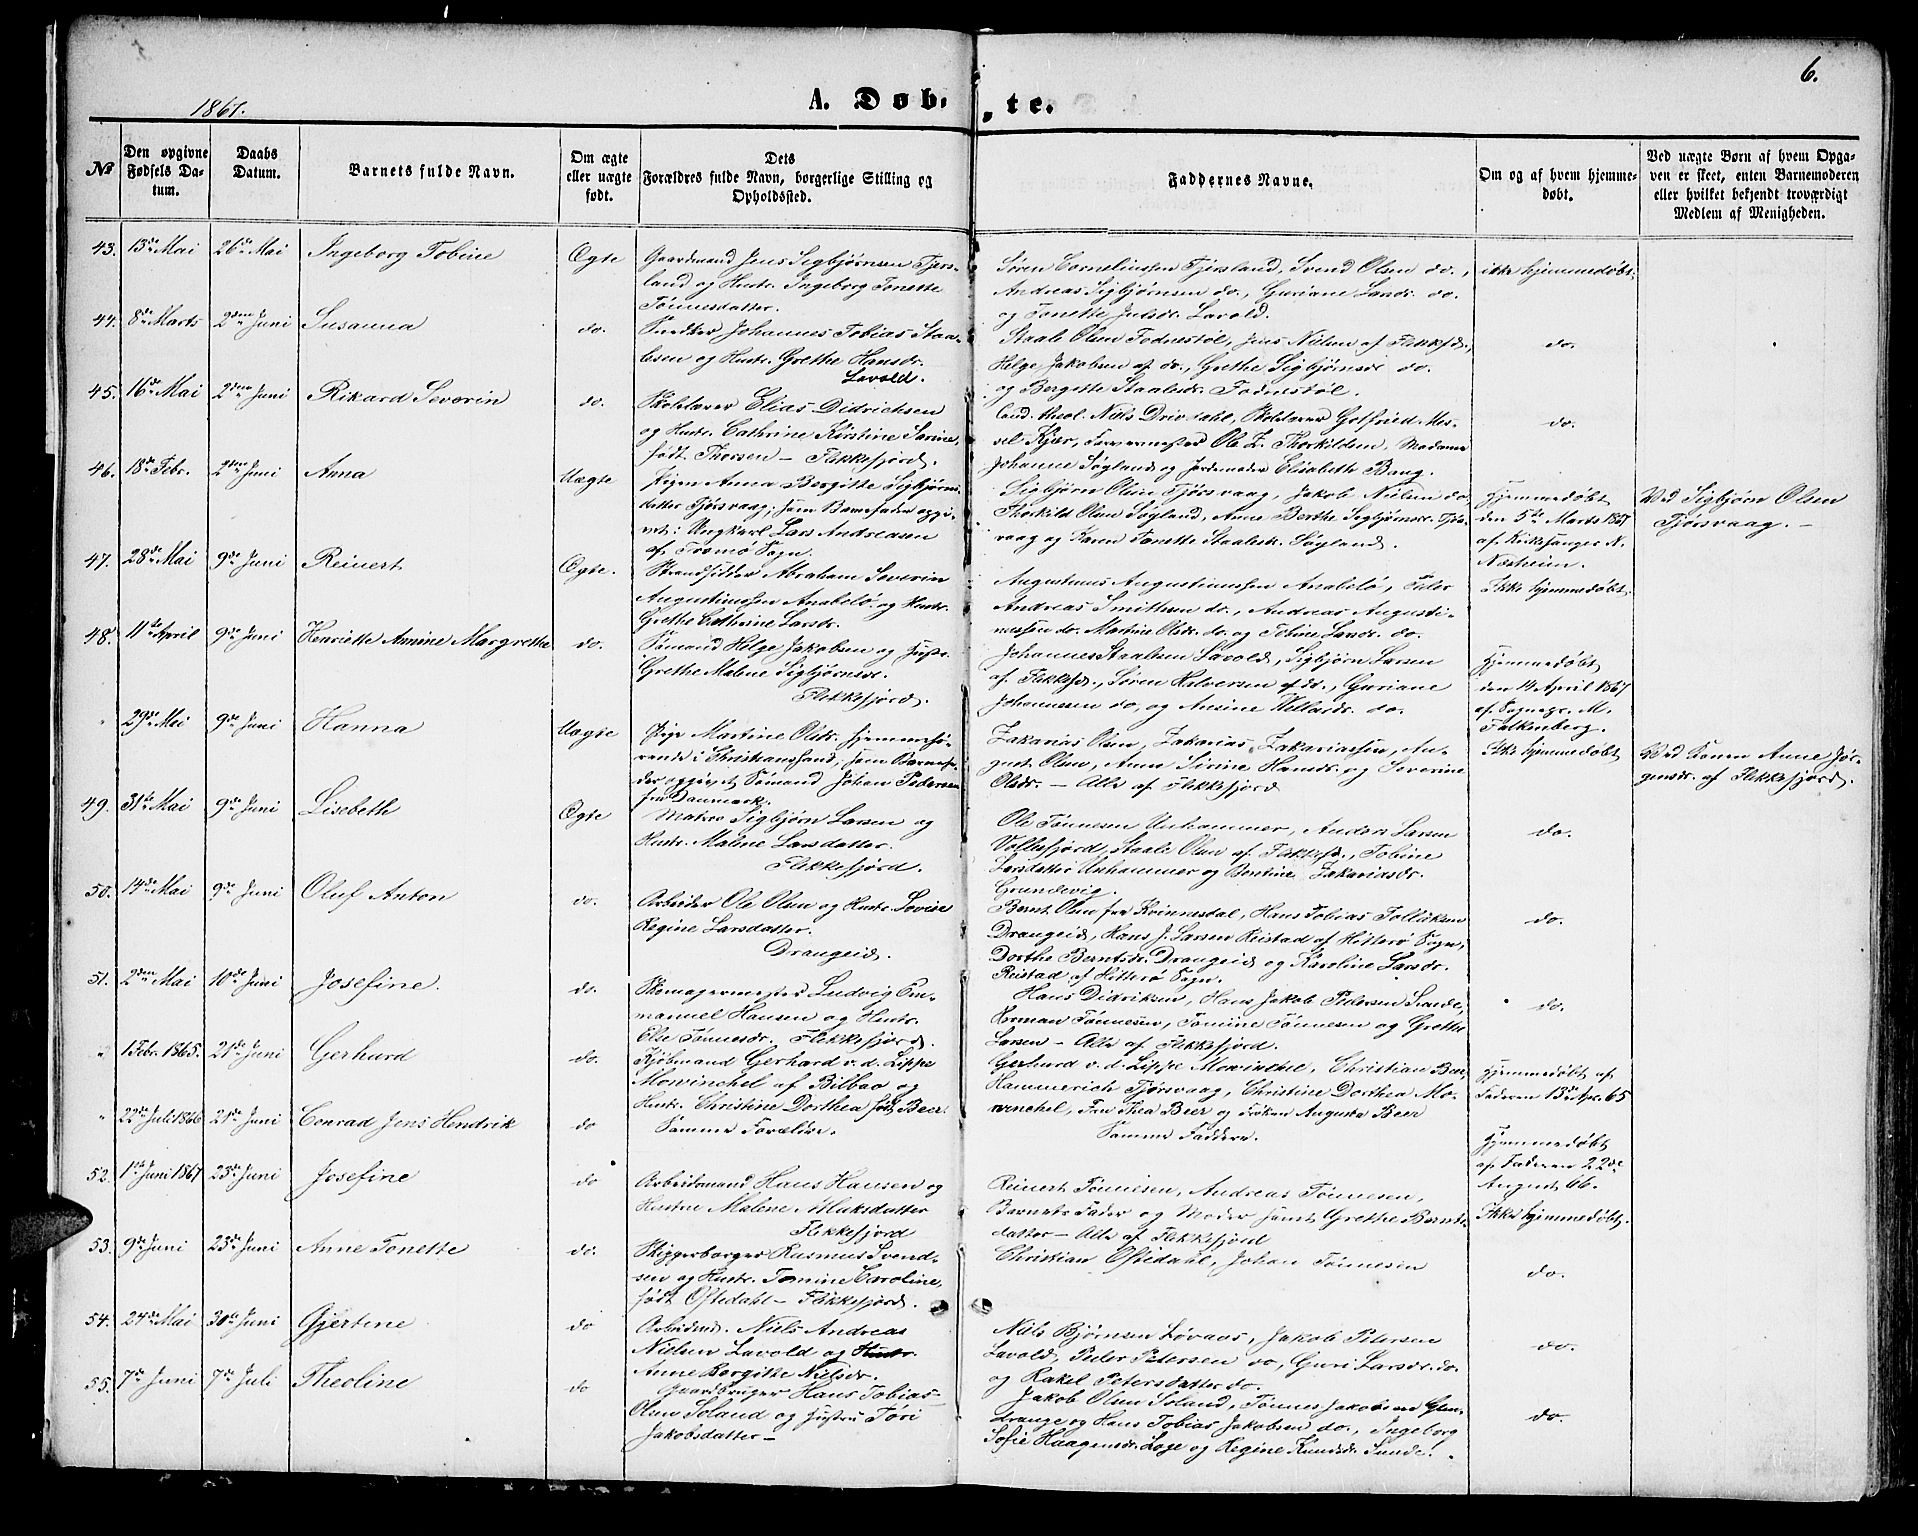 6.
1867. A. Døb- te.
No
Den opgivne Fødsels Datum.
Daabs Datum.
Barnets fulde Navn.
Om ægte eller uægte født.
Dets Forældres fulde Navn, borgerlige Stilling og Opholdssted.
Faddernes Navne.
Om og af hvem hjemmedøbt.
Ved uægte Børn af hvem Opgaven er skeet, enten Barnemoderen eller hvilket bekjendt troværdigt Medlem af Menigheden.
43. 13de Mai 26de Mai Ingeborg Tobine Ægte
Gaardmand Jens Sigbjørnsen Tjørs-
land og Hustr. Ingeborg Tonette
Tönnesdatter.
Søren Corneliussen Tjørsland, Svend Olsen do.,
Andreas Sigbjørnsen do., Guriane Larsdr. do.
og Tonette Julsdr. Lavold.
ikke hjemmedøbt.
44. 8de Marts 2den Juni Susanna do.
Snedker Johannes Tobias Staa-
lesen og Hustr. Grethe Hansdr.
Lavold.
Staale Olsen Fodnestøl, Jens Nilsen af Flekkefd.,
Helge Jakobsen af do., Grethe Sigbjørnsdr. do.
og Bergitte Staalesdr. Fodnestøl.
do.
45. 16de Mai 2den Juni Rikard Severin do.
Skolelærer Elias Didrichsen
og Hustr. Cathrine Kirstine Sarine,
født Thorsen – Flekkefjord.
Cand. theol. Niels Drivdahl, Skolelærer Gotfried Mi-
vel Kjær, Farvermester Ole Z. Thorkildsen, Madame
Johanne Søgland og Jordemoder Elisabeth Bang.
do.
46. 18de Febr. 2den Juni Anna Uægte
Pigen Anna Bergitte Sigbjørns-
datter Tjørsvaag; som Barnefader opgi-
vet: Ungkarl Lars Andreasen
af Fosmö Sogn.
Sigbjørn Olsen Tjørsvaag, Jakob Nielsen do.
Thorkild Olsen Søgland, Anne Berthe Sigbjørnsdr. Tjørs-
vaag og Karen Tonette Staalesdr. Søgland.
Hjemmedøbt
den 5te Marts 1867
af Kirkesanger N.
Næsheim.
Ved Sigbjørn Olsen
Tjørsvaag. –
47. 28de Mai 9de Juni Reinert Ægte.
Strandsidder Abraham Severin
Augustinussen Anabelö og Hustr.
Grethe Cathrine Larsdr.
Augustinus Augustinussen Anabelö, Peder
Andreas Smithsen do., Andreas Augusti-
nussen do. Martine Olsdr. do. og Tobine Larsdr. do.
Ikke hjemmedøbt
48. 11te April 9de Juni Henriette Annine Margrethe do.
Sømand Helge Jakobsen og Hustr.
Grethe Malene Sigbjørnsdr.
Flekkefjord.
Johannes Staalesen Lavold, Sigbjørn Larsen
af Flekkefd., Søren Halversen af do., Guriane
Johannessen do. og Ansine Wellardr. do.
Hjemmedøbt
den 14 April 1867
af Sognepr. M.
Falkenberg.
" 29de Mai 9de Juni Hanna Uægte
Pige Martine Olsdr. hjemmehø-
rende i Christianssand; som Barnefa-
der opgivet Sømand Johan Pedersen
fra Danmark.
Zakarias Olsen, Zakarias Zakariassen, Au-
gust Olsen, Anne Sirine Hansdr. og Severine
Olsdr. – Alle af Flekkefjord
Ikke hjemmedøbt
Ved Konen Anne Jør-
gensdr. af Flekkefjord.
49. 31te Mai 9de Juni Lisebeth Ægte
Matros Sigbjørn Larsen og
Hustr. Malene Larsdatter.
Flekkefjord.
Ole Tönnesen Unhammer, Anders Larsen
Vollesfjord, Staale Olsen af Flekkefd., Tobine
Larsdatter Unhammer og Bentine Zakariasdr.
Grundevig.
do.
50. 14de Mai 9de Juni Oluf Anton do.
Arbeider Ole Olsen og Hustr. Lovise
Regine Larsdatter.
Drangeid.
Bernt Olsen fra Kvinnesdal, Hans Tobias Tolliksen
Drangeid, Hans J. Larsen Reistad af Hitterö Sogn,
Dorthe Berntsdr. Drangeid og Karoline Larsdr.
Reistad af Hitterö Sogn.
do.
51. 2den Mai 10de Juni Josefine. do.
Skomagermester Ludvig Em-
manuel Hansen og Hustr.
Else Tønnesdr. Flekkefjord.
Hans Didriksen, Hans Jakob Pedersen Lande,
Herman Tönnesen, Tomine Tönnesen og Grethe
Larsen – Alle af Flekkefjord.
do.
" 1 Febr. 1865. 21de Juni Gerhard do.
Kjøbmand Gerhard v. d. Lippe
Mowinchel af Bilbao og
Hustr. Christine Dorthea født Beer.
Gerhard v. d. Lippe Mowinchel, Christian Beer,
Hammerich Tjørsvaag, Christine Dorthea Mo-
winchel, Fru Thea Beer og Frøken Augusta Beer
Hjemmedøbt af
Faderen 13de Apr. 65
" 22de Juli 1866 21de Juni Conrad Jens Hendrik do
Samme Forældre.
Samme Faddere.
Hjemmedøbt
af Faderen 22de
August 66.
52. 1ste Juni 1867 23de Juni Josefine do
Arbeidsmand Hans Hansen og
Hustru Malene Maksdatter
Flekkefjord
Reinert Tönnesen, Andreas Tönnesen,
Barnets Fader og Moder samt Grethe Bernts-
datter – Alle af Flekkefjord
Ikke hjemmedøbt.
53. 9de Juni 23de Juni Anne Tonette do.
Skipperborger Rasmus Svend-
sen og Hustr. Tomine Caroline,
født Oftedahl – Flekkefjord.
Christian Oftedahl, Johan Tönnesen
do.
54. 24de Mai 30te Juni Gjertine do
Arbeidsm. Niels Andreas
Nielsen Lavold og Hustr.
Anne Bergitte Nielsdr.
Niels Bjørnsen Løvaas, Jakob Petersen
Lavold, Peder Petersen do, Guri Larsdr. do.
og Rakel Petersdatter do.
do.
55. 7de Juni 7de Juli Theoline do
Gaardbruger Hans Tobias
Olsen Soland og Hustru Tøri
Jakobsdatter –
Jakob Olsen Soland, Tønnes Jakobsen Glen-
drange og Hans Tobias Jakobsen do., Ingeborg
Sofie Haagensdr. Loge og Regine Knudsdr. Sunde.
do.